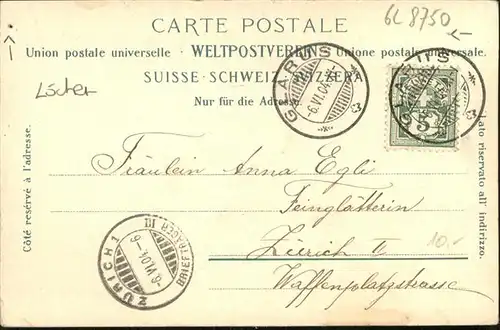 CARTE POSTALE
GL 8750
Union postale universelle - WELTPOSTVEREIN - Unione postale universale.
SUISSE · SCHWEIZ · SVIZZERA
Nur für die Adresse.
GLARUS
-6.VI.04.
GLARUS
5
Côté resérvé à l'adresse.
Lato riservato all' indirizzo.
Fräulein Anna Egli
Feinglätterin
Zürich II
Waffenplatzstrasse
10.-
ZÜRICH 1
-6.VI.04.-6
BRIEFTRÄGER III